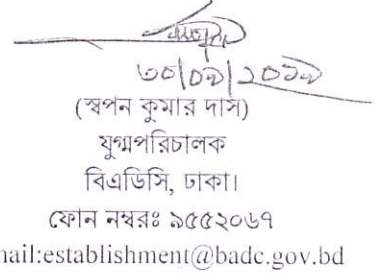 ৩০/০৯/২০১৯
(স্বপন কুমার দাস)
যুগ্মপরিচালক
বিএডিসি, ঢাকা।
ফোন নম্বরঃ ৯৫৫২০৬৭
nail:establishment@badc.gov.bd